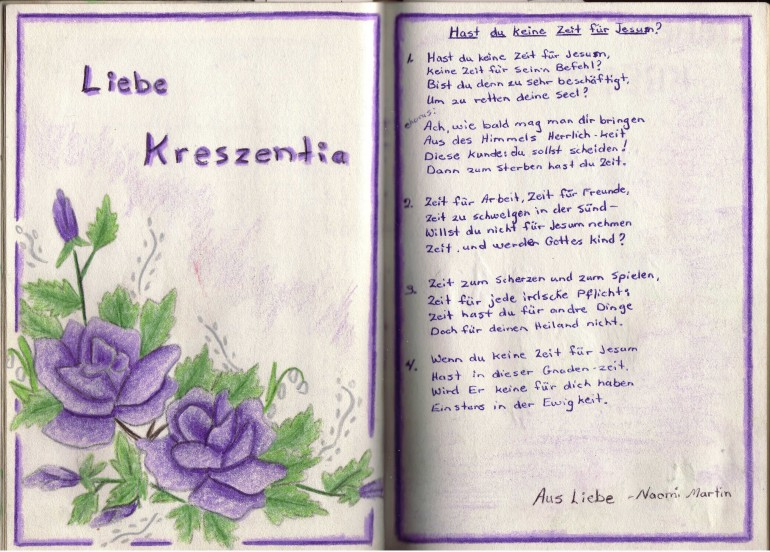 Liebe
Kreszentia
Hast du keine Zeit für Jesum?
1. Hast du keine Zeit für Jesum,
Keine Zeit für Sein'n Befehl?
Bist du denn zu sehr beschäftigt,
Um zu retten deine Seel?
chorus:
Ach, wie bald mag man dir bringen
Aus des Himmels Herrlich-keit
Diese Kunde: du sollst scheiden!
Dann zum Sterben hast du Zeit.
2. Zeit für Arbeit, Zeit für Freunde,
Zeit zu schwelgen in der Sünd—
Willst du nicht für Jesum nehmen
Zeit, und werden Gottes kind?
3. Zeit zum Scherzen und zum Spielen,
Zeit für jede irdsche Pflicht;
Zeit hast du für andre Dinge
Doch für deinen Heiland nicht.
4. Wenn du keine Zeit für Jesum
Hast in dieser Gnaden-zeit.
Wird Er keine für dich haben
Einstens in der Ewigkeit.
Aus Liebe - Naomi Martin